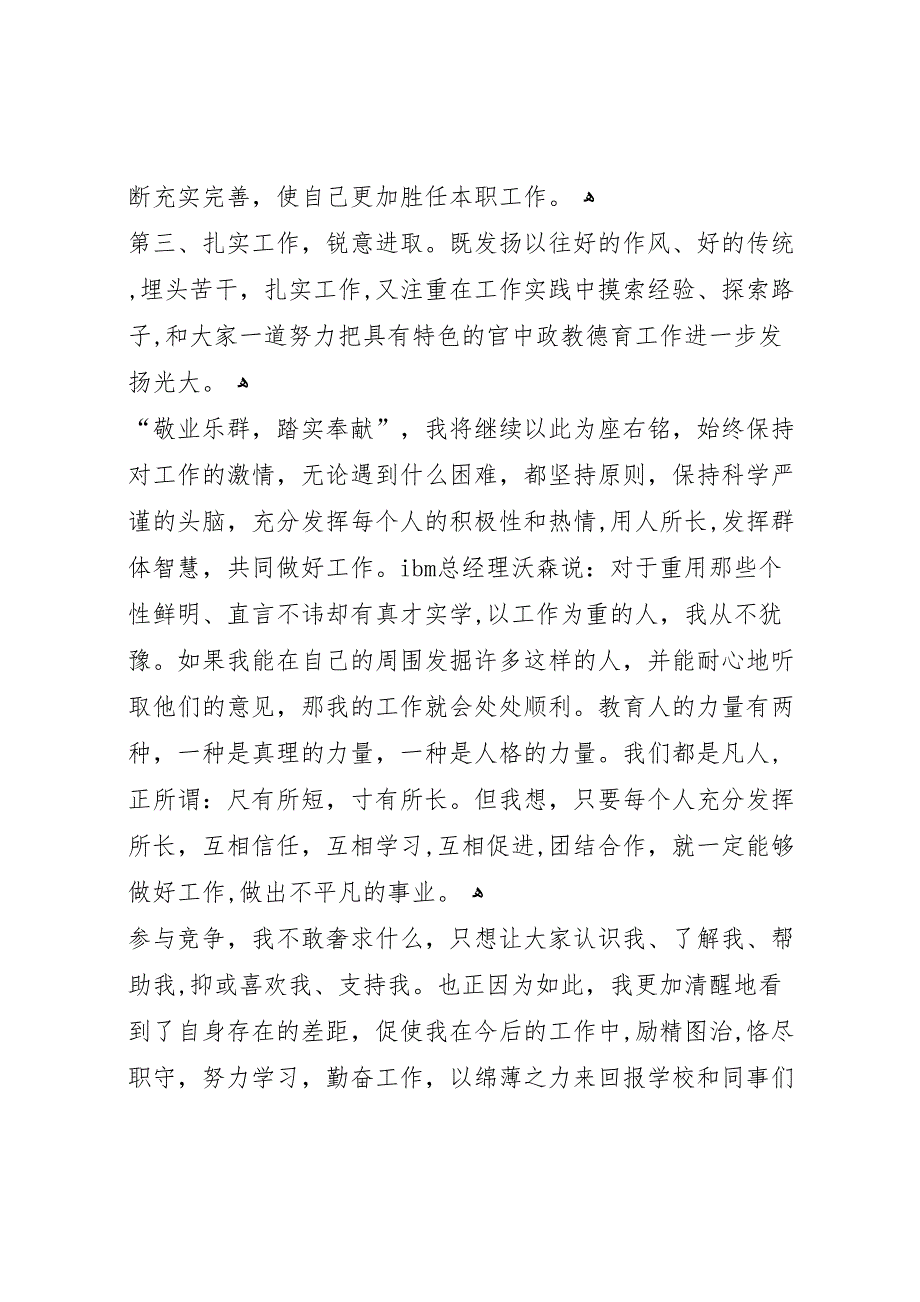 断充实完善，使自己更加胜任本职工作。 ﻫ
第三、扎实工作，锐意进取。既发扬以往好的作风、好的传统
,埋头苦干，扎实工作,又注重在工作实践中摸索经验、探索路
子,和大家一道努力把具有特色的官中政教德育工作进一步发
扬光大。 ﻫ
“敬业乐群，踏实奉献”，我将继续以此为座右铭，始终保持
对工作的激情，无论遇到什么困难，都坚持原则，保持科学严
谨的头脑，充分发挥每个人的积极性和热情,用人所长,发挥群
体智慧，共同做好工作。ibm总经理沃森说：对于重用那些个
性鲜明、直言不讳却有真才实学,以工作为重的人，我从不犹
豫。如果我能在自己的周围发掘许多这样的人，并能耐心地听
取他们的意见，那我的工作就会处处顺利。教育人的力量有两
种，一种是真理的力量，一种是人格的力量。我们都是凡人，
正所谓：尺有所短，寸有所长。但我想，只要每个人充分发挥
所长，互相信任，互相学习,互相促进,团结合作，就一定能够
做好工作,做出不平凡的事业。 ﻫ
参与竞争，我不敢奢求什么，只想让大家认识我、了解我、帮
助我,抑或喜欢我、支持我。也正因为如此，我更加清醒地看
到了自身存在的差距，促使我在今后的工作中,励精图治,恪尽
职守，努力学习，勤奋工作，以绵薄之力来回报学校和同事们